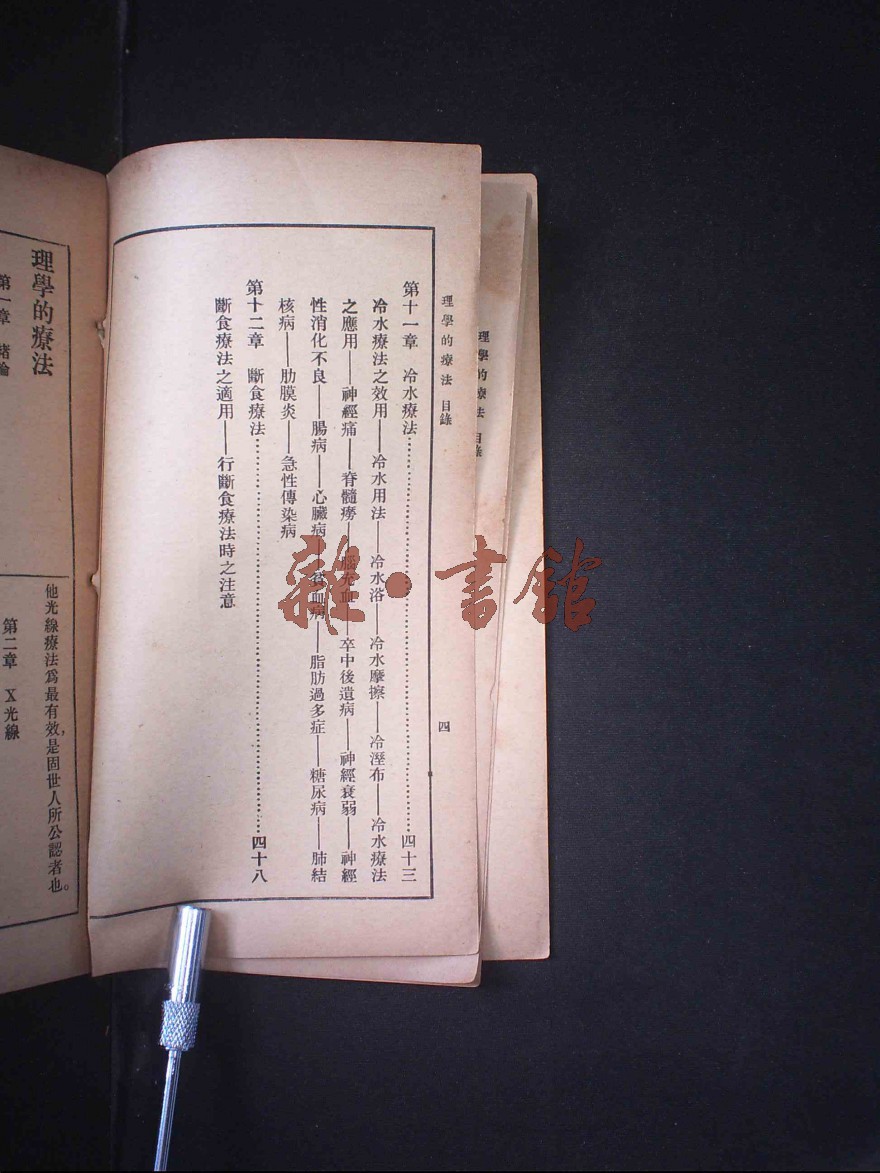 理學的療法 目錄
理學的療法 目錄 四
第十一章 冷水療法……四十三
冷水療法之效用——冷水用法——冷水浴——冷水摩擦——冷溼布——冷水療法
之應用——神經痛——脊髓癆——腦充血——卒中後遺病——神經衰弱——神經
性消化不良——腸病——心臟病——貧血病——脂肪過多症——糖尿病——肺結
核病——肋膜炎——急性傳染病
第十二章 斷食療法……四十八
斷食療法之適用——行斷食療法時之注意
理學的療法
第一章 緒論
他光線療法爲最有效,是固世人所公認者也。
第二章 X光線
雜·書館